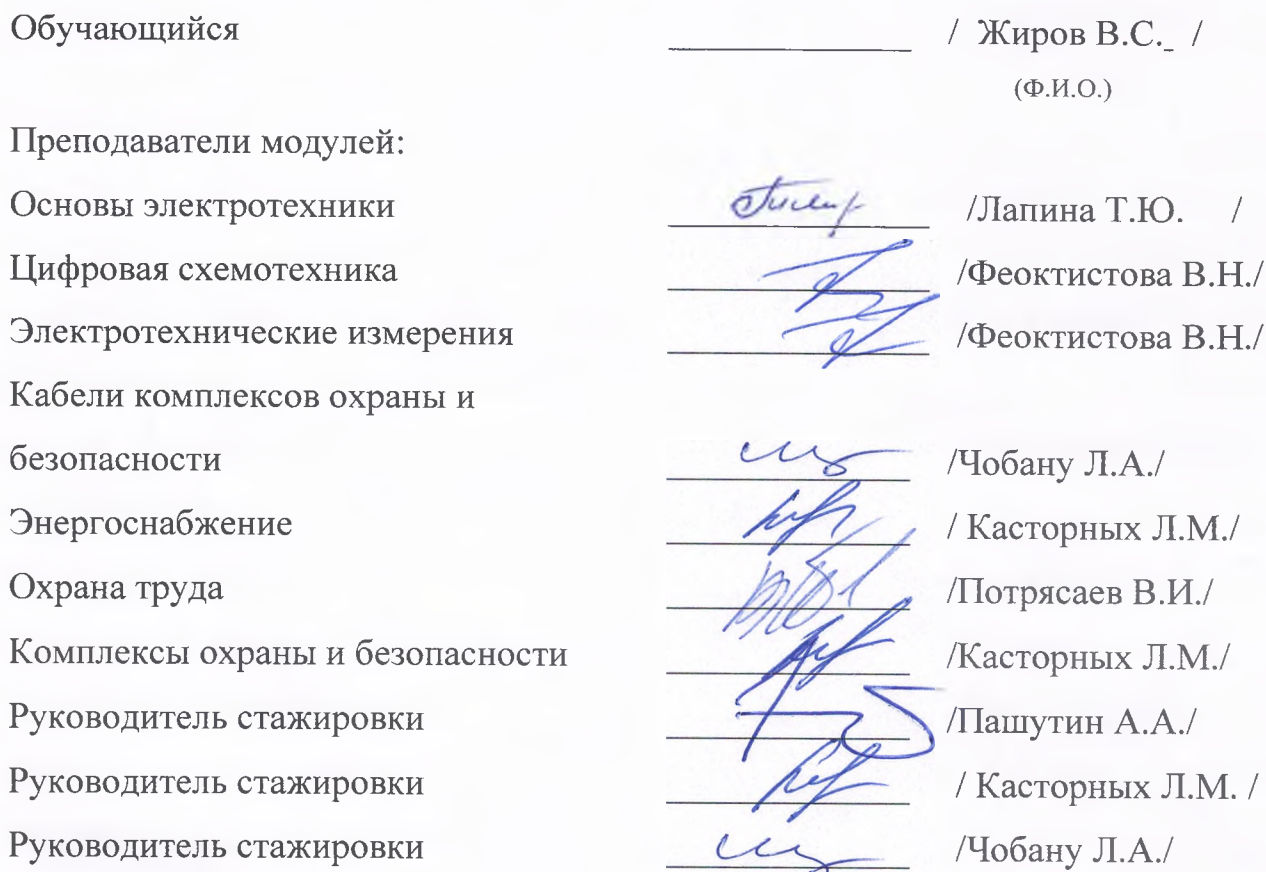 Обучающийся ____________ / Жиров В.С._ /
(Ф.И.О.)
Преподаватели модулей:
Основы электротехники /Лапина Т.Ю. /
Цифровая схемотехника /Феоктистова В.Н./
Электротехнические измерения /Феоктистова В.Н./
Кабели комплексов охраны и
безопасности /Чобану Л.А./
Энергоснабжение / Касторных Л.М./
Охрана труда /Потрясаев В.И./
Комплексы охраны и безопасности /Касторных Л.М./
Руководитель стажировки /Пашутин А.А./
Руководитель стажировки / Касторных Л.М. /
Руководитель стажировки /Чобану Л.А./